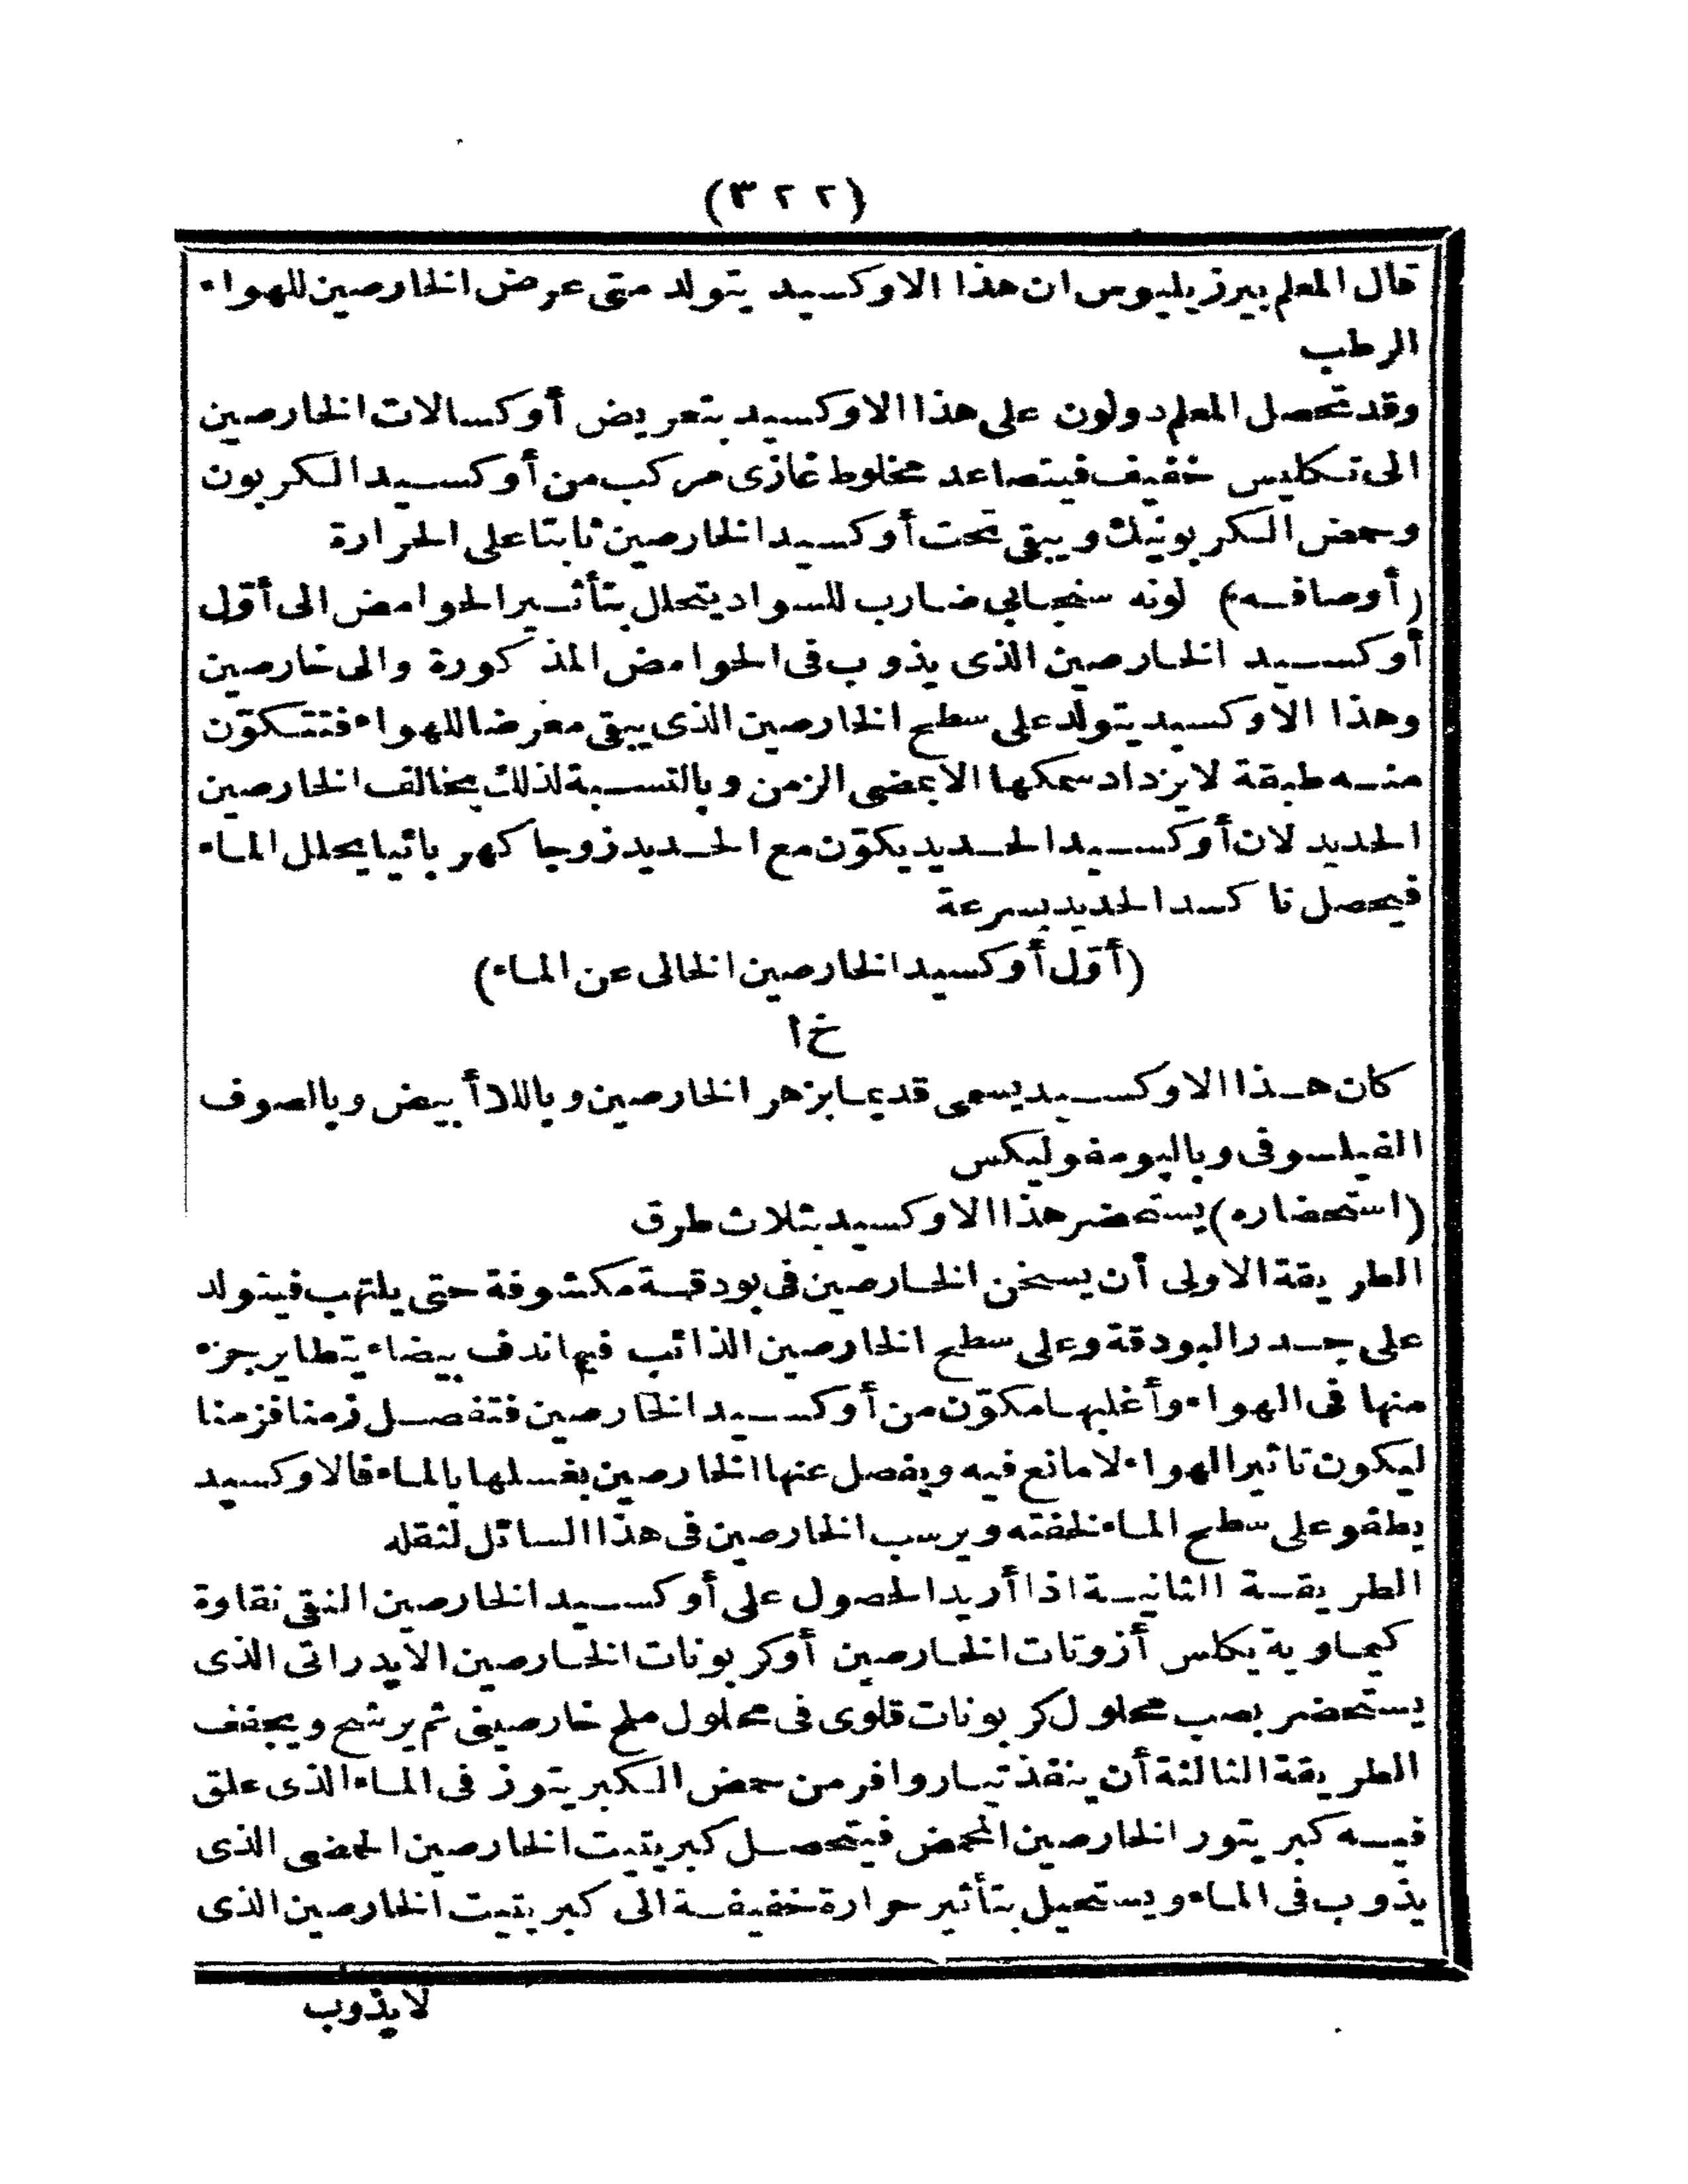 (٣٢٢)
قال المعلم بيرزيليوس ان هذا الاوكسيد يتولد متى عرض الخارصين للهواء
الرطب
وقد تحصل المعلم دولون على هذا الاوكسيد بتعريض أوكسالات الخارصين
الى تكليس خفيف فيتصاعد مخلوط غازى مركب من أوكسيد الكربون
وحمض الكربونيك ويبقى تحت أوكسيد الخارصين ثابتا على الحرارة
(أوصافه) لونه سنجابى ضارب للسواد يتحلل بتأثير الحوامض الى أوّل
أوكسيد الخارصين الذى يذوب فى الحوامض المذكورة والى خارصين
وهذا الاوكسيد يتولد على سطح الخارصين الذى يبقى معرضا للهواء فتتكوّن
منه طبقة لايزداد سمكها الابمضى الزمن وبالنسبة لذلك يخالف الخارصين
الحديد لان أوكسيد الحديد يكوّن مع الحديد زوجا كهربائيا يحلل الماء
فيحصل تاكسد الحديد بسرعة
(أوّل أوكسيد الخارصين الخالى عن الماء)
خ ا
كان هذا الاوكسيد يسمى قديما بزهر الخارصين وباللاأبيض وبالصوف
الفيلسوفى وبالپومفوليكس
(استحضاره) يستحضر هذا الاوكسيد بثلاث طرق
الطريقة الاولى أن يسخن الخارصين فى بودقة مكشوفة حتى يلتهب فيتولد
على جدر البودقة وعلى سطح الخارصين الذائب فيها ندف بيضاء يتطاير جزء
منها فى الهواء وأغلبها مكوّن من أوكسيد الخارصين فتفصل زمنا فزمنا
ليكون تاثير الهواء لامانع فيه ويفصل عنها الخارصين بغسلها بالماء فالاوكسيد
يطفو على سطح الماء لخفته ويرسب الخارصين فى هذا السائل لثقله
الطريقة الثانية اذا أريد الحصول على أوكسيد الخارصين النقى نقاوة
كيماوية يكلس أزوتات الخارصين أوكربونات الخارصين الايدراتى الذى
يستحضر بصب محلول كربونات قلوى فى محلول ملح خارصينى ثم يرشح ويجفف
الطريقة الثالثة أن ينفذ تيار وافر من حمض الكبريتوز فى الماء الذى علق
فيه كبريتور الخارصين المحمض فيتحصل كبريتيت الخارصين الحمضى الذى
يذوب فى الماء ويستحيل بتأثير حرارة خفيفة الى كبريتيت الخارصين الذى
لايذوب